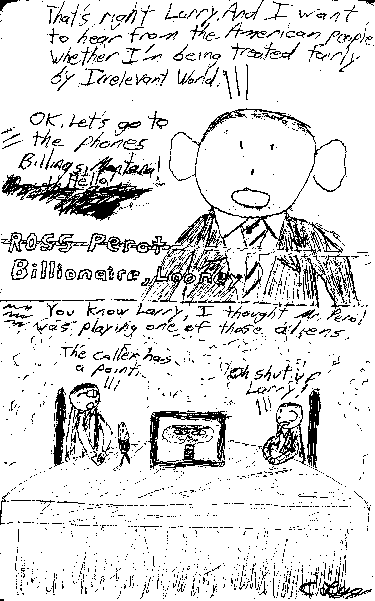 That's right Larry. And I want
to hear from the American people
whether I'm being treated fairly
by Irrelevant World.
OK. Let's go to
the phones
Billings, Montana!
Hello!
ROSS Perot
Billionaire, Loony
You know Larry, I thought Mr. Perot
was playing one of those aliens.
The caller has
a point.
Oh shut up
Larry!